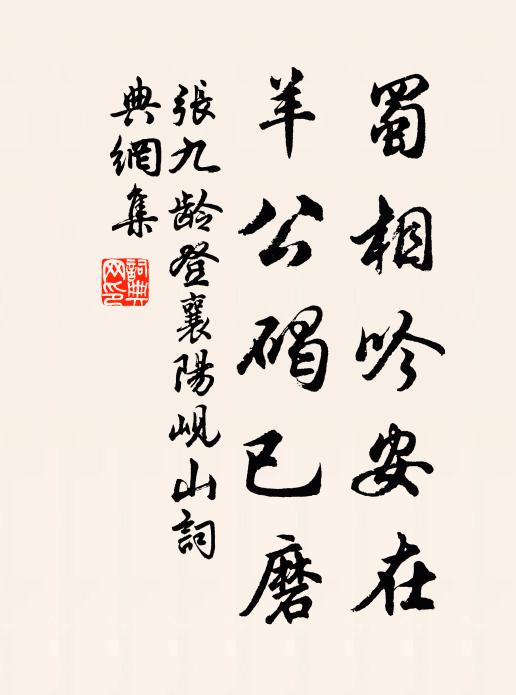 蜀相吟安在
羊公碣已磨
張九龄登襄陽峴山詞
典網集
詞典网印